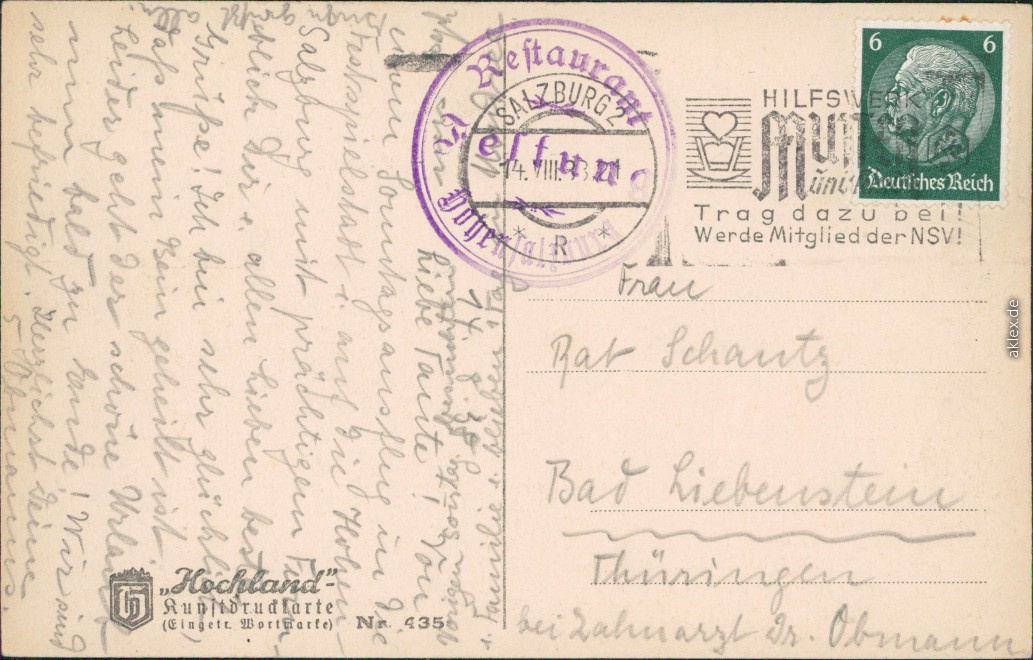 14. 8. 38
Liebe Tante! Von
einem Sonntagsausflug in die
Festspielstadt u. auf die Hohen-
Salzburg mit prächtigem Fern-
blick Dir u. allen Lieben beste
Grüße! Ich bin sehr glücklich,
daß mein Bein geheilt ist.
Leider geht der schöne Urlaub
nun bald zu Ende! Wir sind
sehr befriedigt. Herzlichst Deine
5 Obmanns.
Restaurant
Festung
Hohensalzburg
SALZBURG 2
14. VIII.
* R *
HILFSWERK
Mutter
und
Trag dazu bei!
Werde Mitglied der NSV!
6 6
Deutsches Reich
Frau
Rat Schantz
Bad Liebenstein
Thüringen
bei Zahnarzt Dr. Obmann
„Hochland"
Kunstdruckkarte
(Eingetr. Wortmarke) Nr. 435
aklex.de